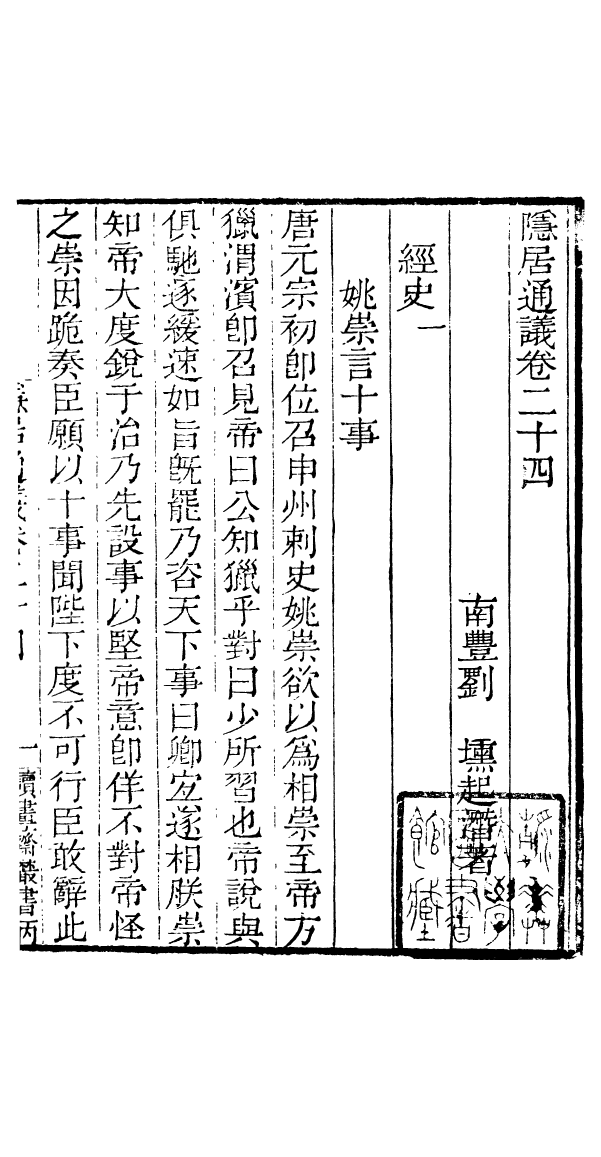 隱居通議卷二十四
南豐劉　壎起潛著
經史一
姚崇言十事
唐元宗初卽位召申州刺史姚崇欲以爲相崇至帝方
獵渭濱卽召見帝曰公知獵乎對曰少所習也帝說與
俱馳逐緩速如旨旣罷乃咨天下事曰卿宐遂相朕崇
知帝大度銳于治乃先設事以堅帝意卽佯不對帝怪
之崇因跪奏臣願以十事聞陛下度不可行臣敢辭此
一讀畫齋叢書丙